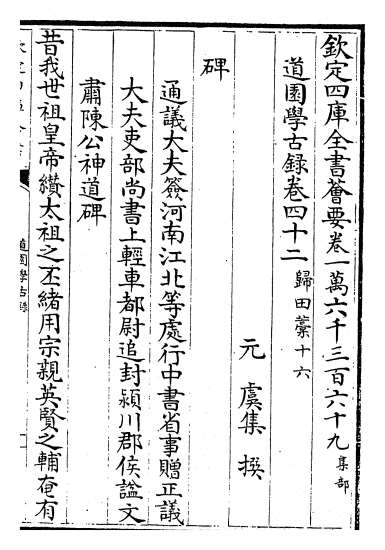 欽定四庫全書薈要卷一萬六千三百六十九 集部
道園學古錄卷四十二 歸田藁十六
元 虞集 撰
碑
通議大夫簽河南江北等處行中書省事贈正議
大夫吏部尚書上輕車都尉追封潁川郡侯諡文
肅陳公神道碑
昔我世祖皇帝纘太祖之丕緒用宗親英賢之輔奄有
道園學古錄